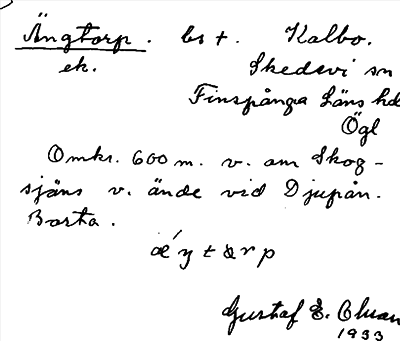 Ängtorp. bs t. Kalbo.
ek. Skedevi sn
Finspånga Läns hd
Ögl
Omkr. 600 m. v. om Skog-
sjäns v. ände vid Djupån.
Borta.
Gustaf E.
1933